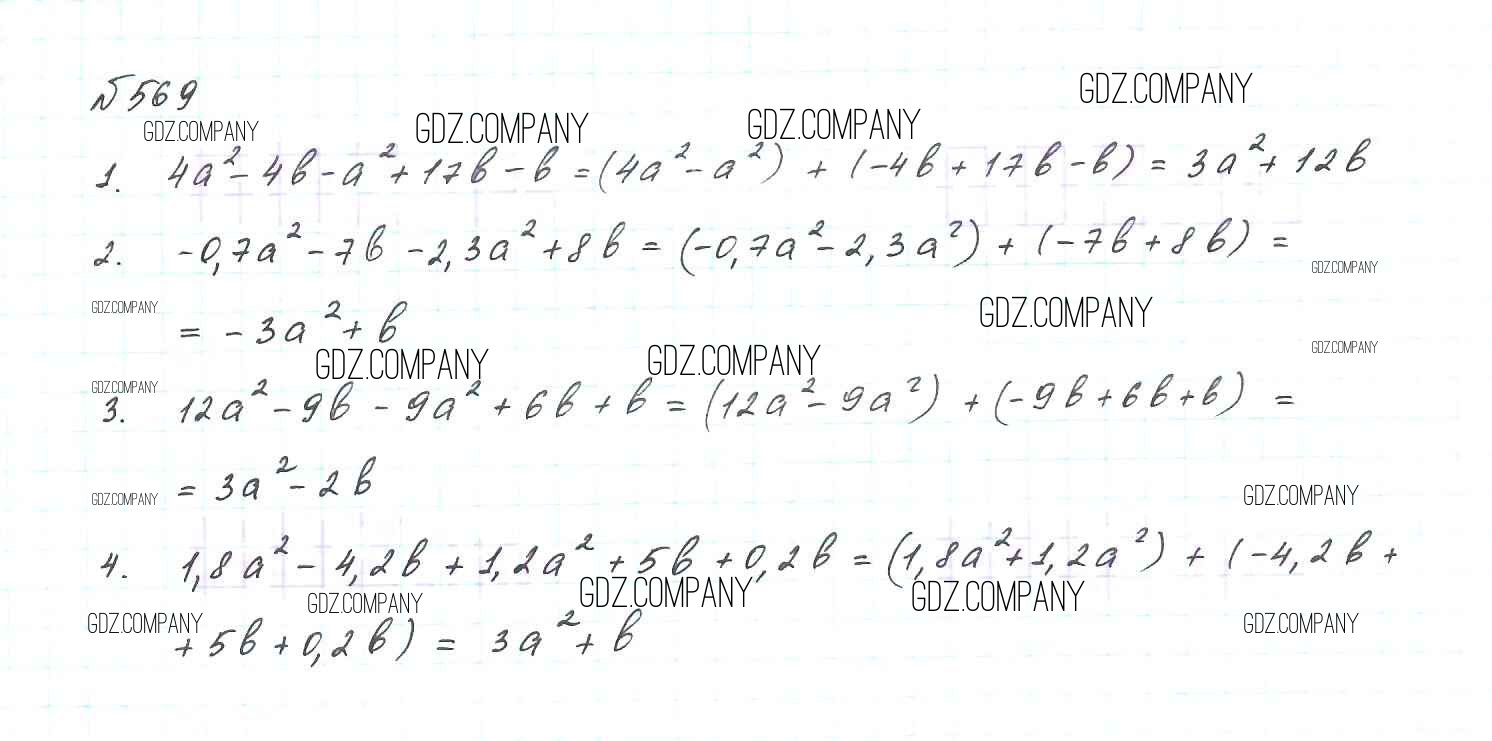 №569
GDZ.COMPANY
GDZ.COMPANY GDZ.COMPANY GDZ.COMPANY
1. 4a² - 4b - a² + 17b - b = (4a² - a²) + (-4b + 17b - b) = 3a² + 12b
2. -0,7a² - 7b - 2,3a² + 8b = (-0,7a² - 2,3a²) + (-7b + 8b) =
GDZ.COMPANY
GDZ.COMPANY GDZ.COMPANY
= -3a² + b
GDZ.COMPANY GDZ.COMPANY GDZ.COMPANY
GDZ.COMPANY
3. 12a² - 9b - 9a² + 6b + b = (12a² - 9a²) + (-9b + 6b + b) =
= 3a² - 2b
GDZ.COMPANY GDZ.COMPANY
4. 1,8a² - 4,2b + 1,2a² + 5b + 0,2b = (1,8a² + 1,2a²) + (-4,2b +
GDZ.COMPANY GDZ.COMPANY GDZ.COMPANY
GDZ.COMPANY GDZ.COMPANY
+ 5b + 0,2b) = 3a² + b